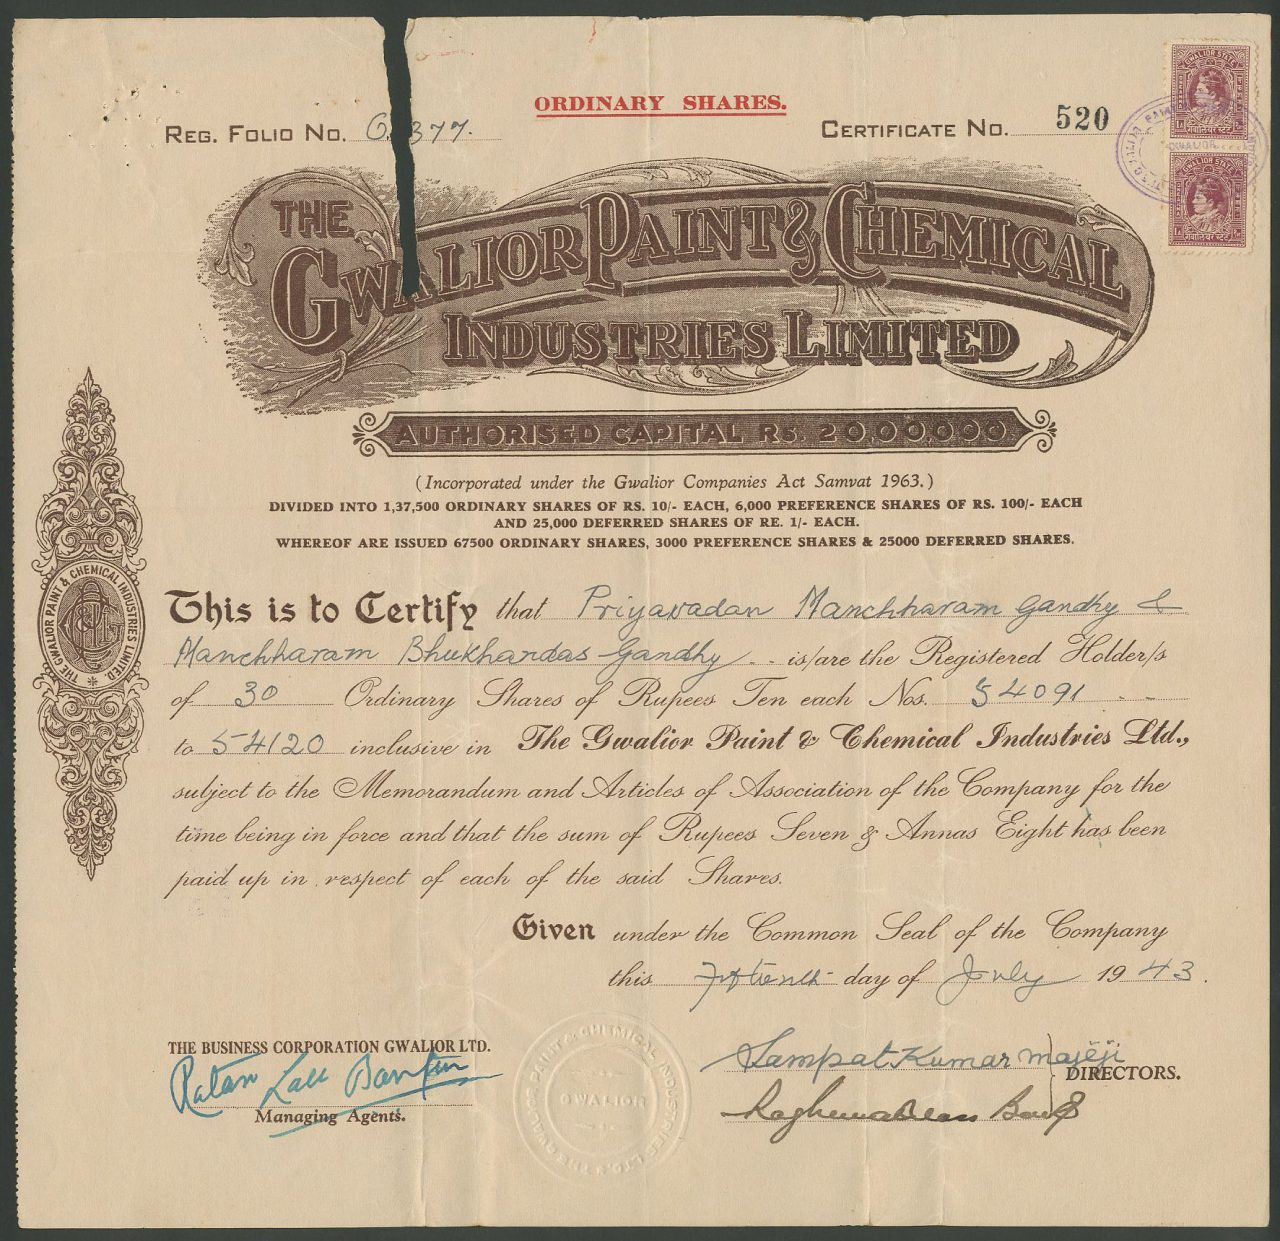 ORDINARY SHARES.
REG. FOLIO NO. G. 377.
CERTIFICATE NO. 520
GWALIOR STATE
GWALIOR
ग्वालियर स्टेट
GWALIOR STATE
ग्वालियर स्टेट
THE
GWALIOR PAINT & CHEMICAL
INDUSTRIES LIMITED
AUTHORISED CAPITAL RS. 20,00,000
(Incorporated under the Gwalior Companies Act Samvat 1963.)
DIVIDED INTO 1,37,500 ORDINARY SHARES OF RS. 10/- EACH, 6,000 PREFERENCE SHARES OF RS. 100/- EACH
AND 25,000 DEFERRED SHARES OF RE. 1/- EACH.
WHEREOF ARE ISSUED 67500 ORDINARY SHARES, 3000 PREFERENCE SHARES & 25000 DEFERRED SHARES.
THE GWALIOR PAINT & CHEMICAL INDUSTRIES LIMITED.
This is to Certify that Priyavadan Manchharam Gandhy &
Manchharam Bhukhandas Gandhy is/are the Registered Holder/s
of 30 Ordinary Shares of Rupees Ten each Nos. 54091
to 54120 inclusive in The Gwalior Paint & Chemical Industries Ltd.,
subject to the Memorandum and Articles of Association of the Company for the
time being in force and that the sum of Rupees Seven & Annas Eight has been
paid up in respect of each of the said Shares.
Given under the Common Seal of the Company
this Fifteenth day of July 1943.
THE BUSINESS CORPORATION GWALIOR LTD.
Ratan Lall
Managing Agents.
THE GWALIOR PAINT & CHEMICAL INDUSTRIES LTD.
GWALIOR
Sampat Kumar
DIRECTORS.